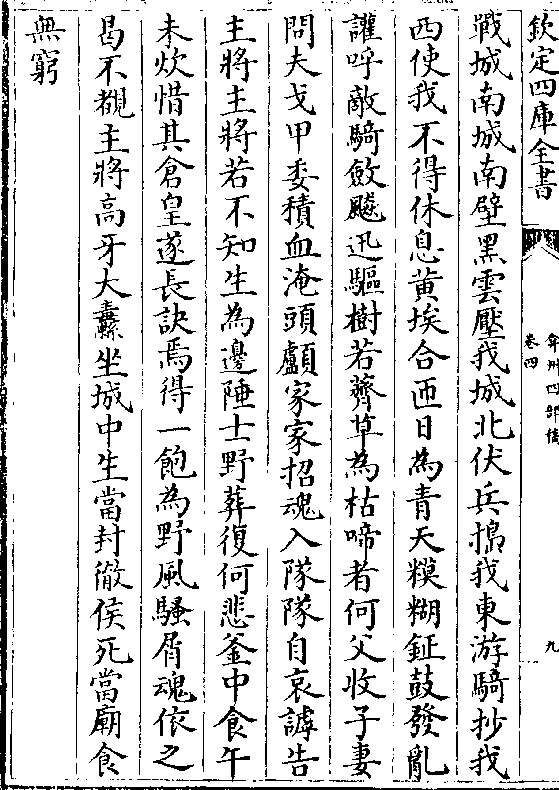 欽定四庫全書
弇州四部稿
卷四
九
戰城南城南壁黑雲壓我城北伏兵搗我東游騎抄我
西使我不得休息黄埃合匝日為青天糢糊鉦鼓發亂
讙呼敵騎斂飈迅驅樹若薺草為枯啼者何父收子妻
問夫戈甲委積血淹頭顱家家招魂入隊隊自哀諕告
主將主將若不知生為邊陲士野葬復何悲釜中食午
未炊惜其倉皇遂長訣焉得一飽為野風騷屑魂依之
曷不覩主將高牙大纛坐城中生當封徹侯死當廟食
無窮